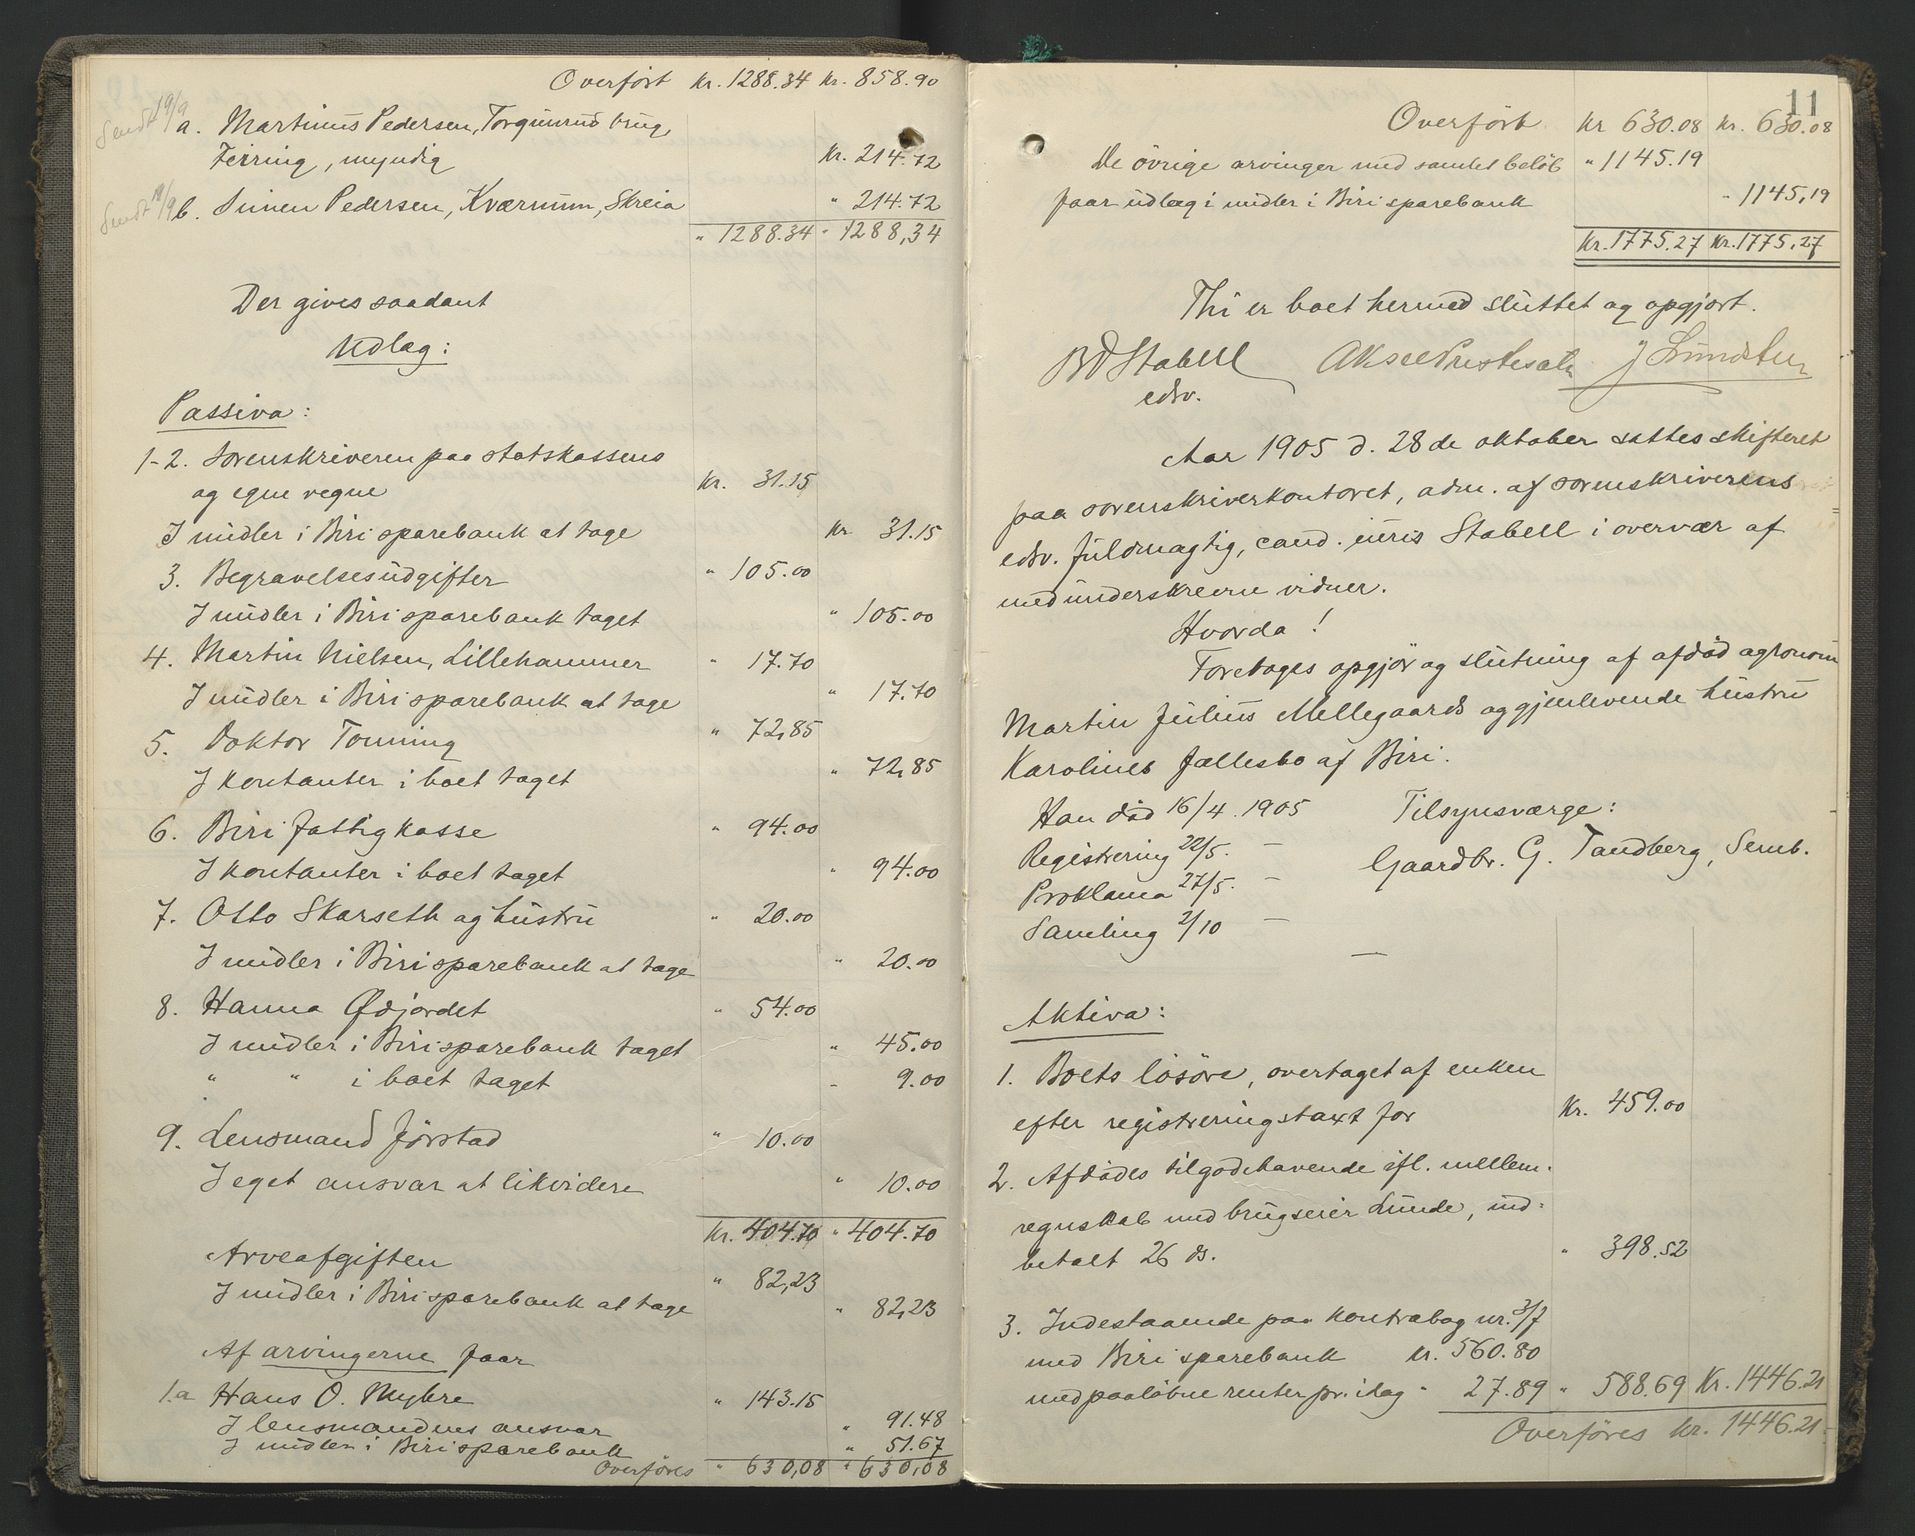 Overført Kr. 1288.34 Kr. 858.90
Sendt 19/9 a. Martinus Pedersen, Torgunrud brug,
Feiring, myndig Kr. 214.72
Sendt 19/9 b. Simen Pedersen, Kværnum, Skreia " 214.72
" 1288.34 " 1288,34
Der gives saadant
Udlæg:
Passiva:
1-2. Sorenskriveren paa statskassens
og egne vegne Kr. 31.15
I midler i Biri sparebank at tage Kr 31.15
3. Begravelsesudgifter " 105.00
I midler i Biri sparebank taget " 105.00
4. Martin Nielsen, Lillehammer " 17.70
I midler i Biri sparebank at tage " 17.70
5. Doktor Tonning " 72,85
I kontanter i boet taget " 72,85
6. Biri fattigkasse " 94.00
I kontanter i boet taget " 94.00
7. Otto Skarseth og hustru " 20.00
I midler i Biri sparebank at tage " 20.00
8. Hanna Ødjordet " 54.00
I midler i Biri sparebank taget " 45.00
" " i boet taget - 9.00
9. Lensmand Jørstad " 10.00
I eget ansvar at likvidere " 10.00
Kr. 404.70 " 404.70
Arveafgiften " 82,23
I midler i Biri sparebank at tage " 82,23
Af arvingerne faar
1.a Hans O. Myhre " 143.15
I lensmandens ansvar " 91.48
I midler i Biri sparebank " 51.67
Overføres " 630,08 " 630,08
11
Overført Kr 630.08 Kr. 630.08
De øvrige arvinger med samlet beløb " 1145.19
faar udlæg i midler i Biri sparebank " 1145,19
Kr. 1775.27 Kr. 1775,27
Thi er boet hermed sluttet og opgjort.
B Stabell
edsv.
Aar 1905 d. 28de oktober sattes skifteret
paa sorenskriverkontoret, adm. af sorenskriverens
edsv. fuldmægtig, cand. juris Stabell i overvær af
medunderskrevne vidner.
Hvorda!
Foretoges opgjør og slutning af afdød agronom
Martin Julius Mellegaards og gjenlevende hustru
Karolines fællesbo af Biri.
Han død 16/4. 1905 Tilsynsværge:
Registrering 22/5. — Gaardbr. G. Tandberg, Semb.
Proklama 27/5. —
Samling 2/10 —
—
Aktiva:
1. Boets løsøre, overtaget af enken
efter registreringstaxt for Kr. 459.00
2. Afdødes tilgodehavende ifl. mellem-
regnskab med brugseier Lunde, ind-
betalt 26 ds. " 398.52
3. Indestaaende paa kontrabog nr. 3/7
med Biri sparebank kr. 560.80
med paaløbne renter pr. idag " 27.89 " 588.69 Kr. 1446.21
Overføres Kr. 1446.21